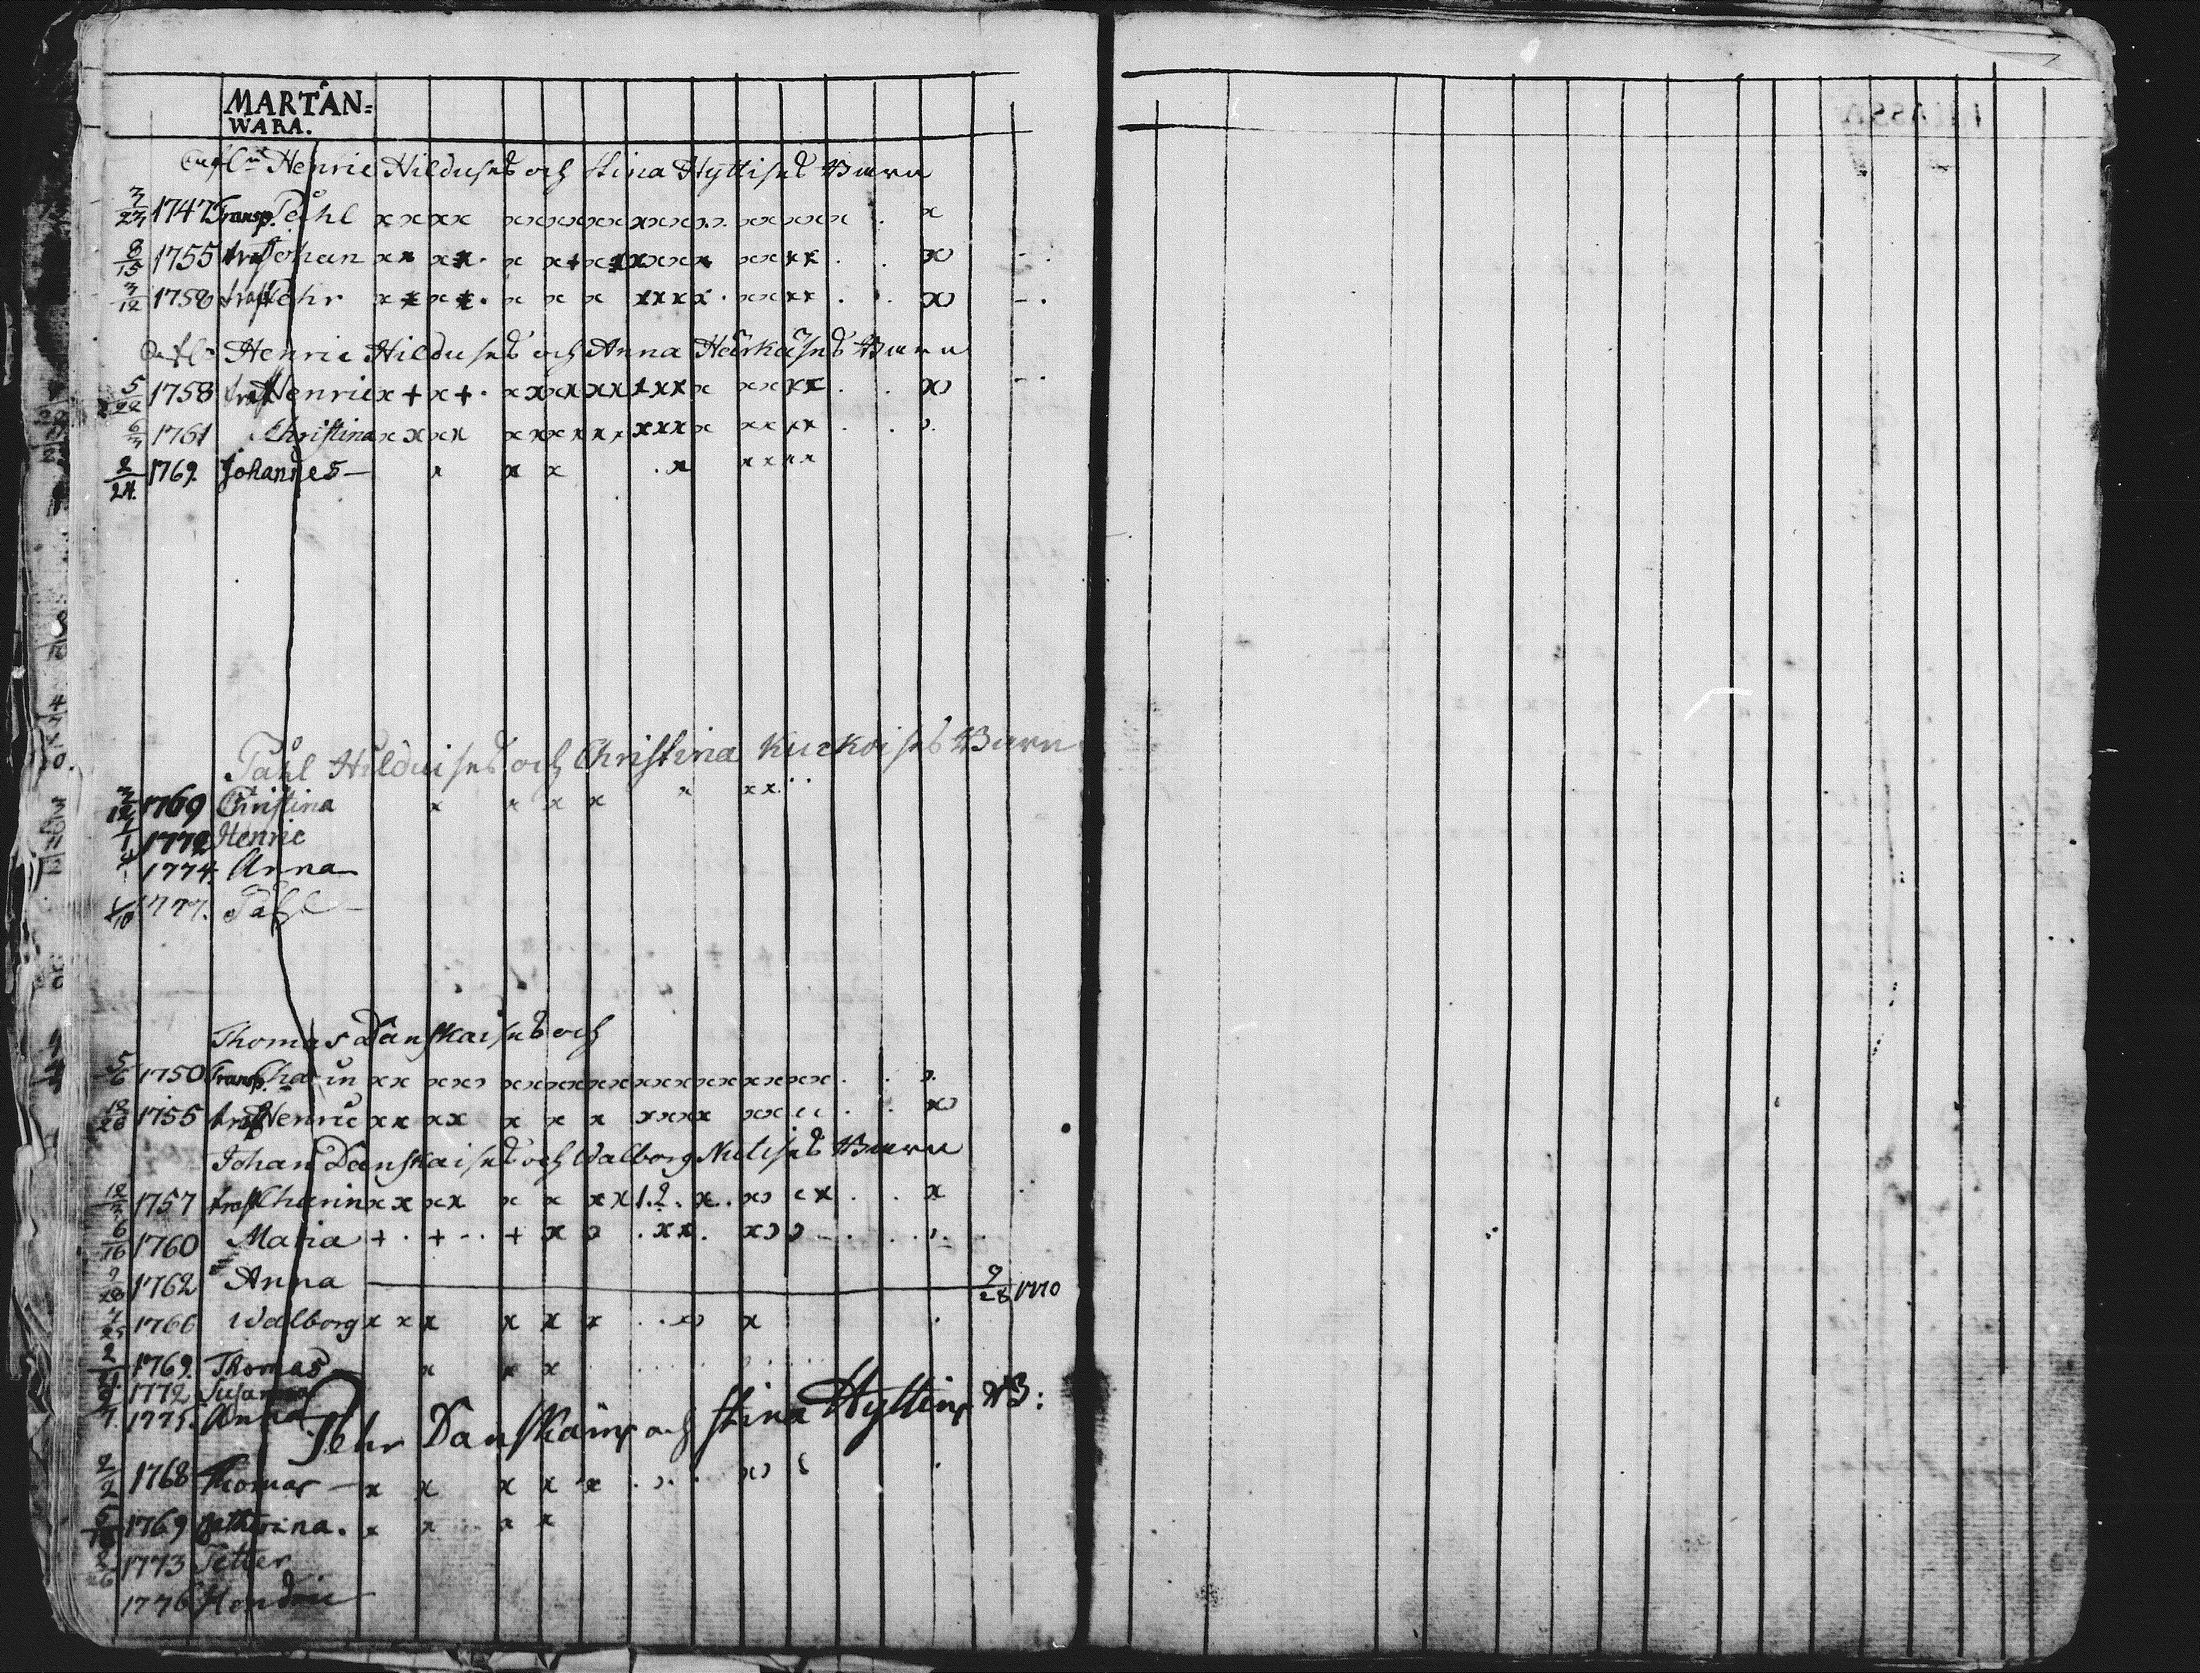 MARTÅN=
WARA.
Henric Hilduses och Stina Hyttises Barn
7/27 1747 Transp. Påhl x x x x x x x x x x x x x x x x x x x x . x
8/15 1755 transp Johan x x x x . x x + x x x x x x x x x x . . x
3/12 1758 transp Pehr x x x x . x x x x x x x . x x x x . . x
Henric Hilduses och Anna Härkäses Barn
5/22 1758 transp Henric x + x + . x x x x x x x x x x x x x x . . x
6/3 1761 Christina x x x x x x x x x x x x x x x x x . .
2/24. 1769. Johannes — x x x . x x x x x
Påhl Hilduises och Christina Kuckoises Barn
3/12 1769 Christina x x x x x x x
1/1 1772 Henric
1774. Anna
1/10 1777. Påhl —
Thomas Danskaises och
5/6 1750 Transp. Charin x x x x x x x x x x x x x x x x x x x . .
12/26 1755 transp Henric x x x x x x x x x x x x x . . x
Johan Danskaises och Walborg Mutises Barn
12/3 1757 transp Charin x x x x x x x x 1.2. x . . x . . x
6/16 1760 Maria + . + - . . + x . x x . x
9/28 1762 Anna — 9/28 1770
7/25 1766 Walborg x x x x x x . . x
2/21 1769. Thomas x x x
1772 Susanna
1775. Anna
Pehr Danskain och Stina Hyttin B:
2/2 1768 Thomas — x x x x x . .
1769 Catharina. x x x x
1773 Petter
1776 Hendric